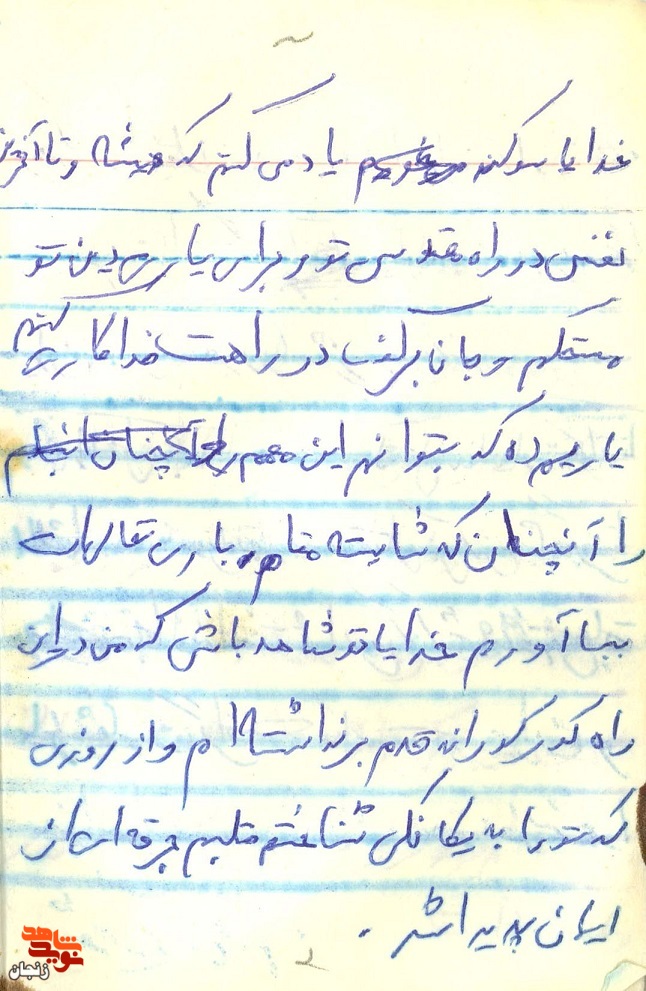 خدایا سوگند یاد می کنم که همیشه و تا آخرین
نفس در راه مقدس تو و برای یاری دین تو
مستحکم و جان برکف در راهت فداکاری کنم
یاریم ده که بتوانم این مهم را آنچنان انجام
را آنچنان که شایسته مقام باری تعالی است
بجا آورم خدایا تو شاهد باش که من در این
راه کورکورانه قدم برنداشته ام و از روزی
که تو را به یگانگی شناختم قلبم جرقه ای از
ایمان پدید آمد .
۲
شاهد
نوید
زنجان